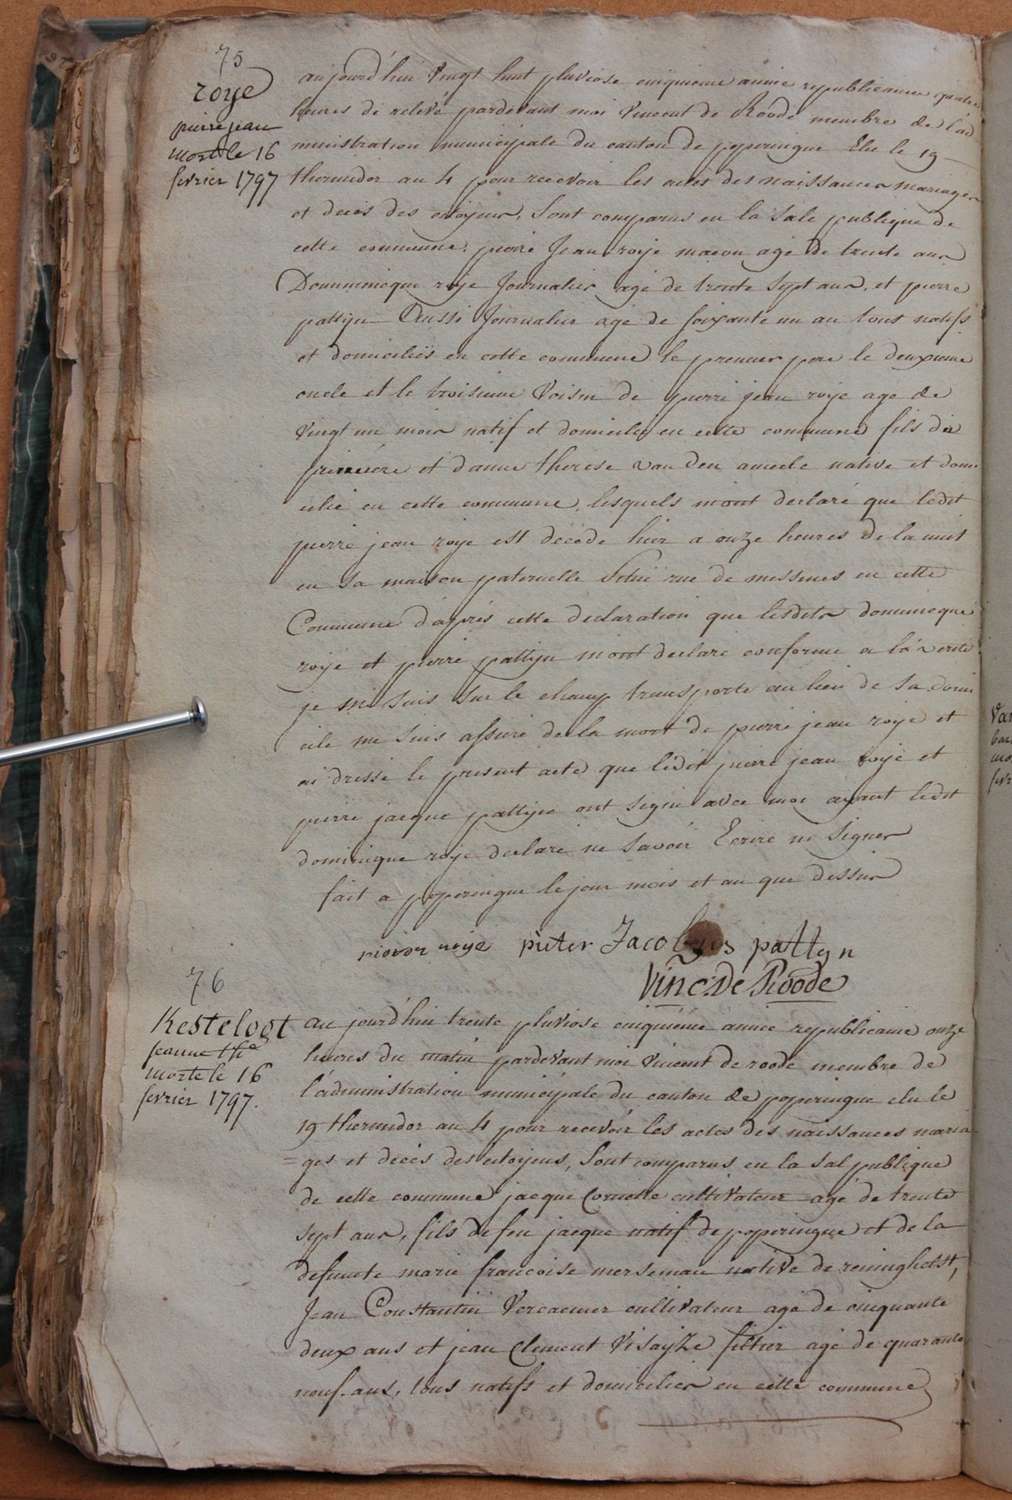 75
roye
pierre jean
mort le 16
fevrier 1797
aujourd'hui vingt huit pluviose cinquieme année republicaine quatre
heures de relevé pardevant moi vincent de Roode membre de l'ad
ministration municipale du canton de poperingue Elu le 19
thermidor an 4 pour recevoir les actes des naissances mariages
et deces des citoyens, sont comparus en la sale publique de
cette commune, pierre Jean roye macon agé de trente ans
Dominique roye Journalier agé de trente sept ans, et pierre
pattyn Aussi Journalier agé de soixante un an tout natifs
et domiciliés en cette commune le premier pere le deuxieme
oncle et le troisieme voisin de pierre jean roye agé de
vingt un mois natif et domicilié en cette commune fils du
premiere et d'anne therese van den amecle native et domi
cilié en cette commune, lesquels m'ont declaré que ledit
pierre jean roye est décédé hier a onze heures de la nuit
en sa maison paternelle situé rue de messines en cette
Commune d'apres cette declaration que lesdits dominique
roye et pierre pattyn m'ont declaré conforme a la verité
je me suis sur le champ transporté au lieu de sa domi
cile me suis assuré de la mort de pierre jean roye et
ai dressé le present acte que ledit pierre jean roye et
pierre jacque pattyn ont signé avec moi ayant ledit
dominique roye declaré ne savoir Ecrire ni signer
fait a poperingue le jour mois et an que dessus
roye pieter Jacobus pattyn
Vinc. De Roode
76
Kesteloot
jeanne the
morte le 16
fevrier 1797.
aujourd'hui trente pluviose cinquieme année republicaine onze
heures du matin pardevant moi vincent de roode membre de
l'administration municipale du canton de poperingue elu le
19 thermidor an 4 pour recevoir les actes des naissances maria
=ges et décès des citoyens, sont comparus en la sal publique
de cette commune jacque Cornette cultivateur agé de trente
sept ans, fils de feu jacque natif de poperingue et de la
defuncte marie francoise merseman native de reninghelst,
Jean Constantin Vercaemer cultivateur agé de cinquante
deux ans et jean Clement Visayze agé de quarante
neuf ans, tous natifs et domicilier en cette commune